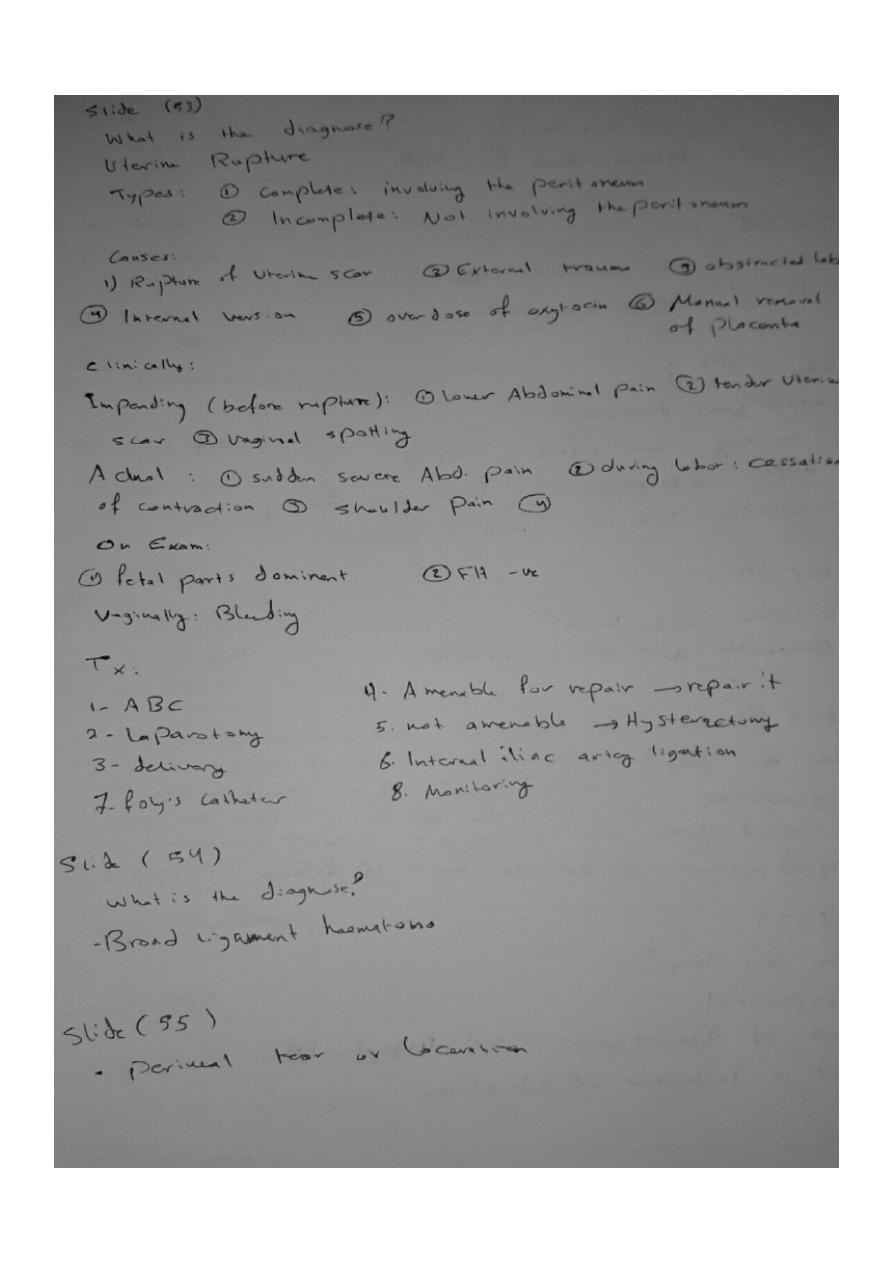 Slide (53)
What is the diagnose?
Uterine Rupture
Types: ① Complete: involving the peritoneum
② Incomplete: Not involving the peritoneum
Causes:
1) Rupture of Uterine scar ② External trauma ③ obstructed lab
④ Internal version ⑤ overdose of oxytocin ⑥ Manual removal
of Placenta
Clinically:
Impending (before rupture): ① Lower Abdominal pain ② tender Uterine
scar ③ vaginal spotting
Actual : ① sudden severe Abd. pain ② during labor: cessation
of contraction ③ shoulder Pain ④
On Exam:
① fetal parts dominent ② FH -ve
Vaginally: Bleeding
Tx:
1- ABC
2- Laparotomy
3- delivary
7- foly's catheter
4- Amenable for repair → repair it
5. not amenable → Hysterectomy
6. Internal iliac artey ligation
8. Monitoring
Slide (54)
What is the diagnose?
-Broad Ligament haematoma
Slide (55)
• perineal tear or laceration